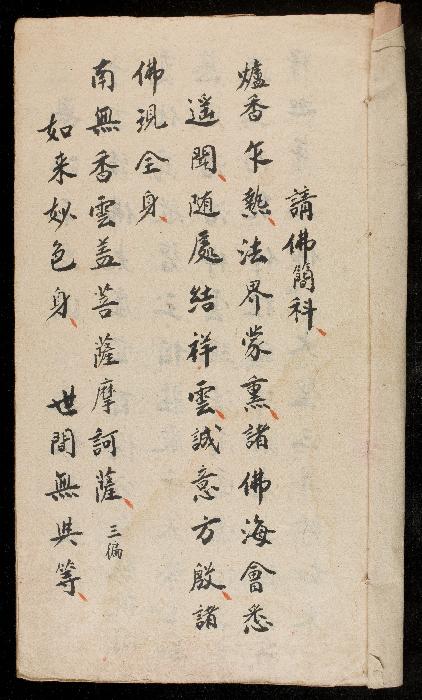 請佛簡科、
爐香乍熱、法界蒙熏、諸佛海會悉
遥聞、随處結祥雲、誠意方殷、諸
佛現全身、
南無香雲盖菩薩摩訶薩、三徧
如来妙色身、 世間無與等、